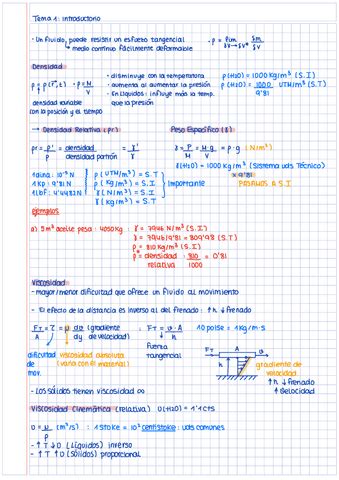 Tema 1: introductorio
- Un fluido, puede resistir un esfuerzo tangencial
↳ medio continuo fácilmente deformable
· ρ = lim δm / δV
δV → δV*
Densidad
ρ = ρ (r⃗, t) · ρ = M / V
densidad variable con la posición y el tiempo
- disminuye con la temperatura
- aumenta al aumentar la presión
- En líquidos: influye más la temp. que la presión
ρ(H20) = 1000 Kg/m³ (S.I)
ρ(H20) = 1000 / 9'81 UTM/m³ (S.T)
→ Densidad Relativa (ρr)
Peso Específico (γ)
ρr = ρ' / ρ = densidad / densidad patrón = γ' / γ
γ = P / V = M·g / V = ρ·g (N/m³)
γ(H20) = 1000 Kg/m³ (Sistema uds Técnico)
x 9'81
PASAMOS A S.I
1 dina: 10⁻⁵ N
1 Kp: 9'81 N
1 lbf: 4'4482 N
ρ (UTM/m³) = S.T
ρ (Kg/m³) = S.I
γ (N/m³) = S.I
γ (Kg/m³) = S.T
Importante
Ejemplos
a) 5m³ aceite pesa: 4050Kg
: γ = 7946 N/m³ (S.I)
γ = 7946/9'81 = 809'98 (S.T)
ρ = 810 Kg/m³ (S.I)
ρ = densidad relativa : 810 / 1000 = 0'81
Viscosidad
- mayor/menor dificultad que ofrece un fluido al movimiento
- El efecto de la distancia es inverso al del frenado : ↑ h ↓ frenado
FT / A = τ = μ du / dy (gradiente de velocidad)
: FT = υ · A / h
fuerza tangencial
10 poise = 1 Kg/m·s
dificultad de mov.
viscosidad absoluta (varía con el material)
FT
A
υ
h
gradiente de velocidad
↑ h ↓ frenado
↑ velocidad
- Los sólidos tienen viscosidad ∞
Viscosidad Cinemática (relativa) υ(H20) = 1'1 cts
υ = μ / ρ (m²/s) : 1 stoke = 10² centistoke : uds comunes
- ↑ T ↓ υ (Líquidos) inverso
- ↑ T ↑ υ (Sólidos) proporcional